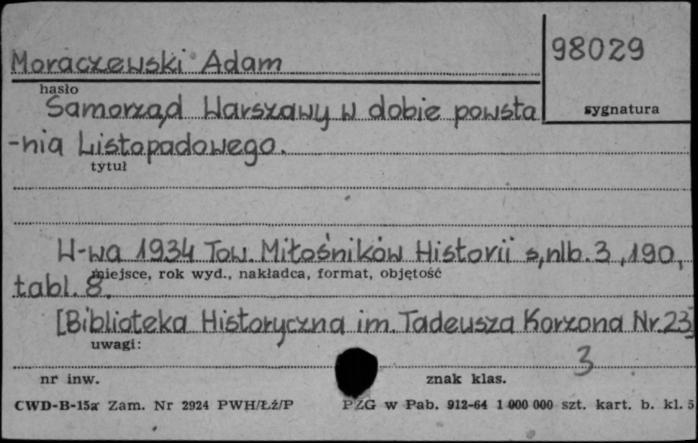 Moraczewski Adam
98029
hasło
sygnatura
Samorząd Warszawy w dobie powsta
-nia Listopadowego.
tytuł
W-wa 1934 Tow. Miłośników Historii s, nlb. 3, 190,
miejsce, rok wyd., nakładca, format, objętość
tabl. 8.
[Biblioteka Historyczna im. Tadeusza Korzona Nr. 23]
uwagi:
3
nr inw.
znak klas.
CWD-B-15a Zam. Nr 2924 PWH/Łź/P
PZG w Pab. 912-64 1 000 000 szt. kart. b. kl. 5